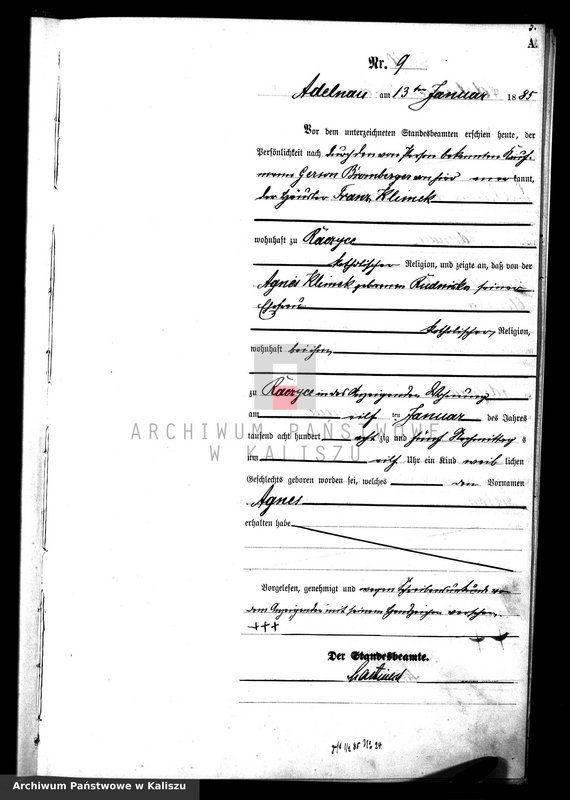 A.
Nr. 9
Adelnau am 13ten Januar 1885
Vor dem unterzeichneten Standesbeamten erschien heute, der
Persönlichkeit nach durch den von Person bekannten Kauf-
mann Gerson Bromberger von hier anerkannt,
der Häusler Franz Klimek
wohnhaft zu Raczyce
katholischer Religion, und zeigte an, daß von der
Agnes Klimek geborenen Rudnicka seiner
Ehefrau
katholischer Religion,
wohnhaft bei ihm
zu Raczyce in des Anzeigenden Wohnung
am eilf ten Januar des Jahres
tausend acht hundert acht zig und fünf Nachmittag s
um eilf Uhr ein Kind weib lichen
Geschlechts geboren worden sei, welches den Vornamen
Agnes
erhalten habe
Vorgelesen, genehmigt und wegen Schreibensunkunde von
dem Anzeigenden mit seinem Handzeichen versehen.
+++
Der Standesbeamte.
ARCHIWUM PAŃSTWOWE
W KALISZU
Archiwum Państwowe w Kaliszu